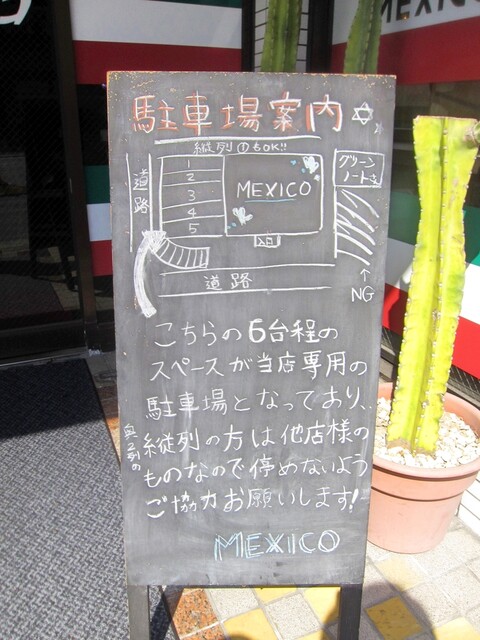 MEXICO
駐車場案内
縦列①もOK!!
道路
1
2
3
4
5
MEXICO
入口
グリーン
ノートさま
道路
↑
NG
こちらの6台程の
スペースが当店専用の
駐車場となっており、
奥2列の
縦列の方は他店様の
ものなので停めないよう
ご協力お願いします!
MEXICO